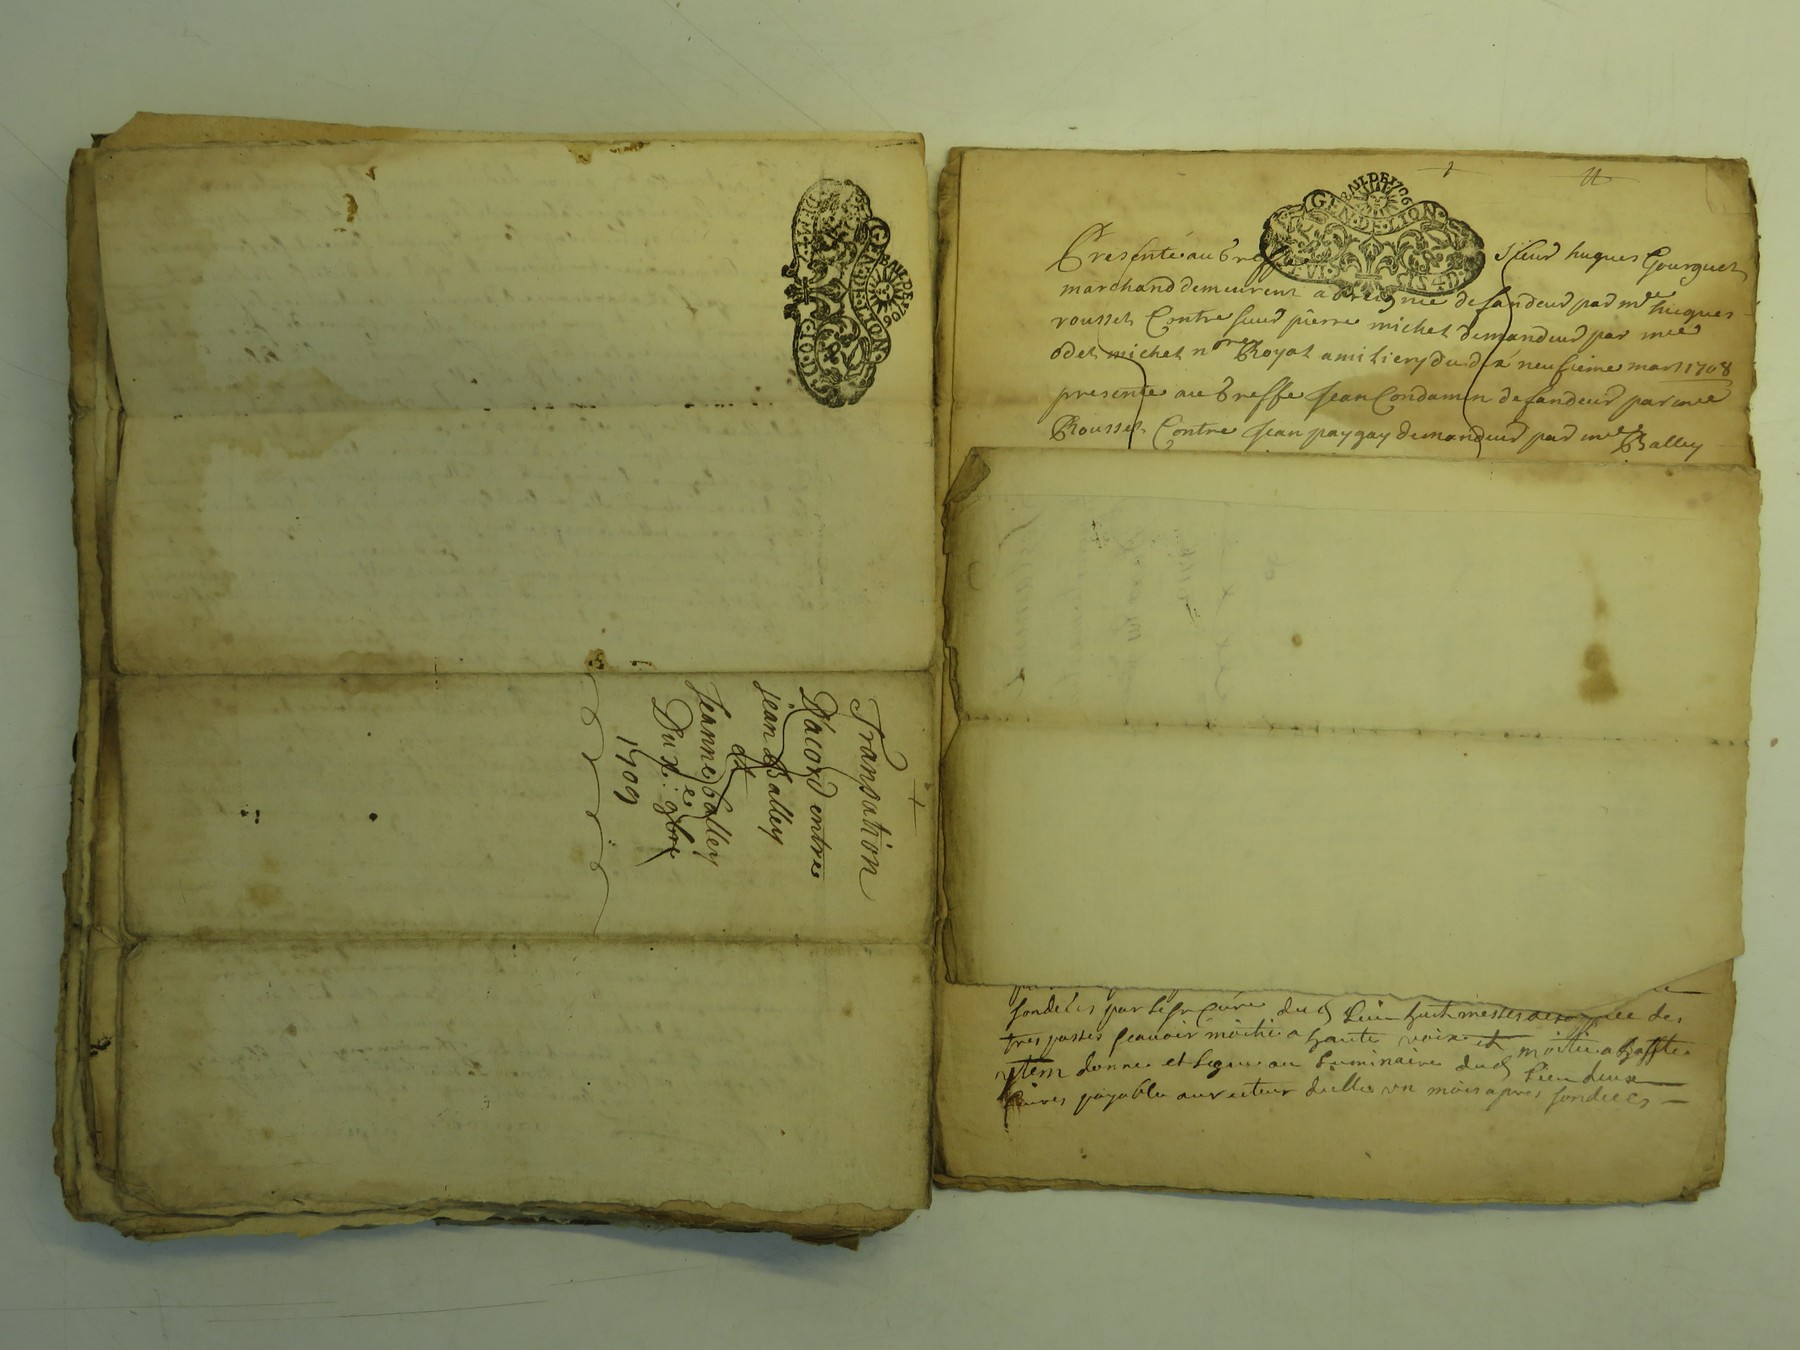 Transation
D'acord entre
jean Balley
et
Jeanne balley
Du x.e 9bre
1709
BAIL DE 1706
GEN DE LION
BAIL DE 1706
GEN DE LION
Presenté au Greffe sieur hugues Gourguet
marchand demeurent a defandeur par me hugues
rousset Contre sieur pierre michel demandeur par mee
odet michel nore Royal amitiery du dix neufieme mars 1708
presente au Greffe Jean Condamin defandeur par mee
Rousset Contre Jean paygay demandeur par mee Balley
fondées par le sr Curé dud Lieu huit messes des
trespassés scavoir moitié a haute voix et moitié a basse
ytem donne et legue au Luminaire dud Lieu deux
Livres payable au recteur dicelluy un mois apres son deces